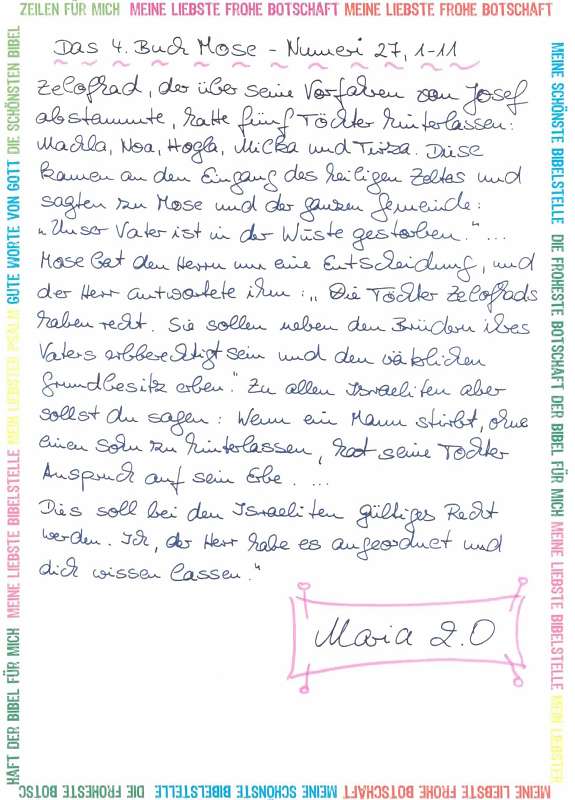 ZEILEN FÜR MICH MEINE LIEBSTE FROHE BOTSCHAFT MEINE LIEBSTE FROHE BOTSCHAFT
Das 4. Buch Mose - Numeri 27, 1-11
Zelofhad, der über seine Vorfahren von Josef
abstammte, hatte fünf Töchter hinterlassen:
Machla, Noa, Hogla, Milka und Tirza. Diese
kamen an den Eingang des heiligen Zeltes und
sagten zu Mose und der ganzen Gemeinde:
„Unser Vater ist in der Wüste gestorben." ...
Mose bat den Herrn um eine Entscheidung, und
der Herr antwortete ihm: „Die Töchter Zelofhads
haben recht. Sie sollen neben den Brüdern ihres
Vaters erbberechtigt sein und den väterlichen
Grundbesitz erben." Zu allen Israeliten aber
sollst du sagen: Wenn ein Mann stirbt, ohne
einen Sohn zu hinterlassen, hat seine Tochter
Anspruch auf sein Erbe. ...
Dies soll bei den Israeliten gültiges Recht
werden. Ich, der Herr habe es angeordnet und
dich wissen lassen."
Maria 2.0
MEINE SCHÖNSTE BIBELSTELLE DIE FROHESTE BOTSCHAFT DER BIBEL FÜR MICH MEINE LIEBSTE BIBELSTELLE MEIN LIEBSTER
MEINE LIEBSTE FROHE BOTSCHAFT MEINE SCHÖNSTE BIBELSTELLE DIE FROHESTE BOTSC
HAFT DER BIBEL FÜR MICH MEINE LIEBSTE BIBELSTELLE MEIN LIEBSTER PSALM GUTE WORTE VON GOTT DIE SCHÖNSTEN BIBEL